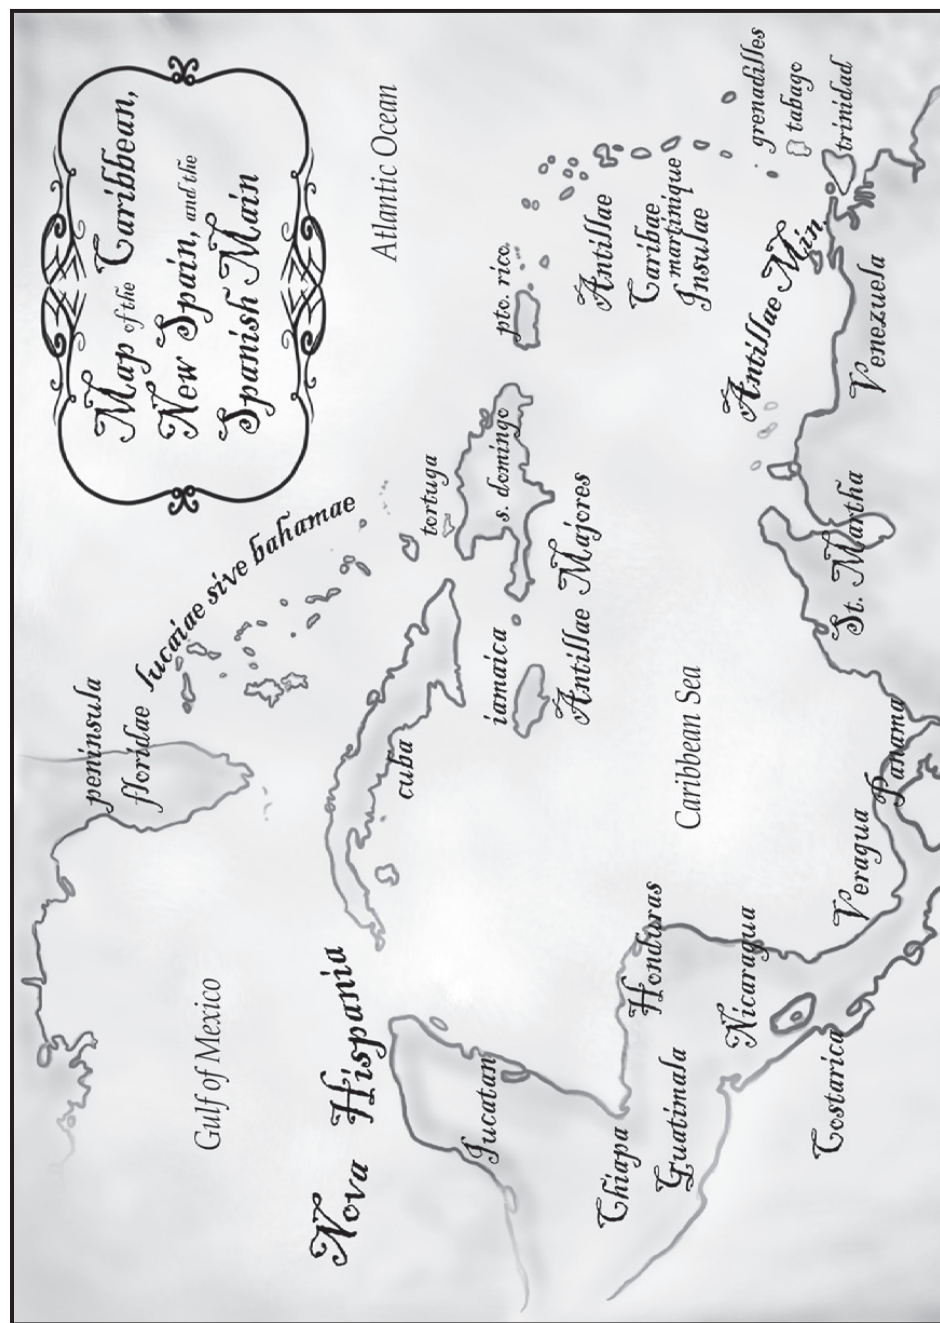 Map of the Caribbean,
New Spain, and the
Spanish Main
Atlantic Ocean
peninsula
floridae
lucaiae sive bahamae
Gulf of Mexico
Nova Hispania
cuba
tortuga
s. domingo
pto. rico.
iamaica
Antillae Majores
Antillae
Caribae
martinique
Insulae
grenadilles
tabago
trinidad
Antillae Min.
Jucatan
Caribbean Sea
Chiapa
Guatimala
Honduras
Nicaragua
Costarica
Veragua
Panama
St. Martha
Venezuela